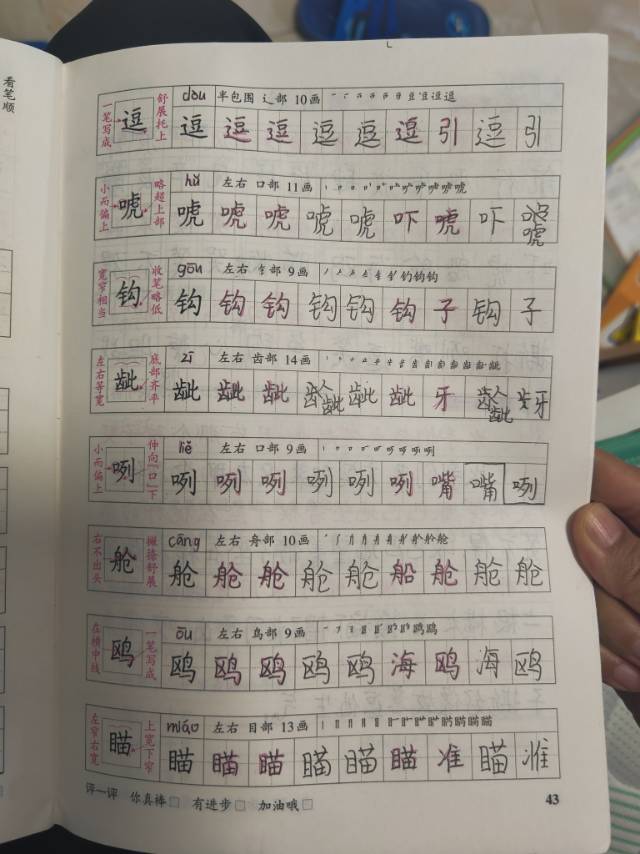 看笔顺
一笔写成 逗 舒展托上
dòu 半包围 辶部 10画
逗 逗 逗 逗 逗 逗 引 逗 引
小而偏上 唬 略超上部
hǔ 左右 口部 11画
唬 唬 唬 唬 唬 吓 唬 吓 唬
宽窄相当 钩 收笔略低
gōu 左右 钅部 9画
钩 钩 钩 钩 钩 钩 子 钩 子
左右等宽 龇 底部齐平
zī 左右 齿部 14画
龇 龇 龇 龇 龇 龇 牙 龇 牙
小而偏上 咧 伸向“口”下
liě 左右 口部 9画
咧 咧 咧 咧 咧 咧 嘴 嘴 咧
右不出头 舱 撇捺舒展
cāng 左右 舟部 10画
舱 舱 舱 舱 舱 船 舱 舱 舱
在横中线 鸥 一笔写成
ōu 左右 鸟部 9画
鸥 鸥 鸥 鸥 鸥 海 鸥 海 鸥
左窄右宽 瞄 上宽下窄
miáo 左右 目部 13画
瞄 瞄 瞄 瞄 瞄 瞄 准 瞄 准
评一评 你真棒 有进步 加油哦
43